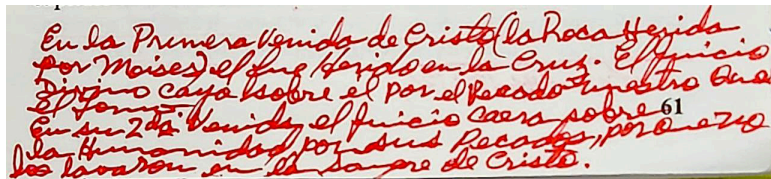 En la Primera Venida de Cristo (la Roca Herida
por Moises) el fue Herido en la Cruz. El Juicio
Divino cayo sobre el por el Pecado nuestro que
el tomó.
En su 2da Venida el Juicio caera sobre 61
la Humanidad por sus Pecados, porque no
los lavaron en la sangre de Cristo.